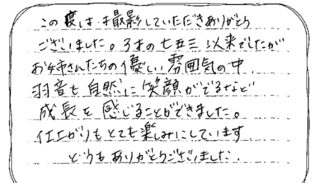 この度は、撮影していただきありがとう
ございました。3才の七五三以来でしたが
お姉さんたちの優しい雰囲気の中
羽音も自然に笑顔がでるなど
成長を感じることができました。
仕上がりもとても楽しみにしています
どうもありがとうございました。